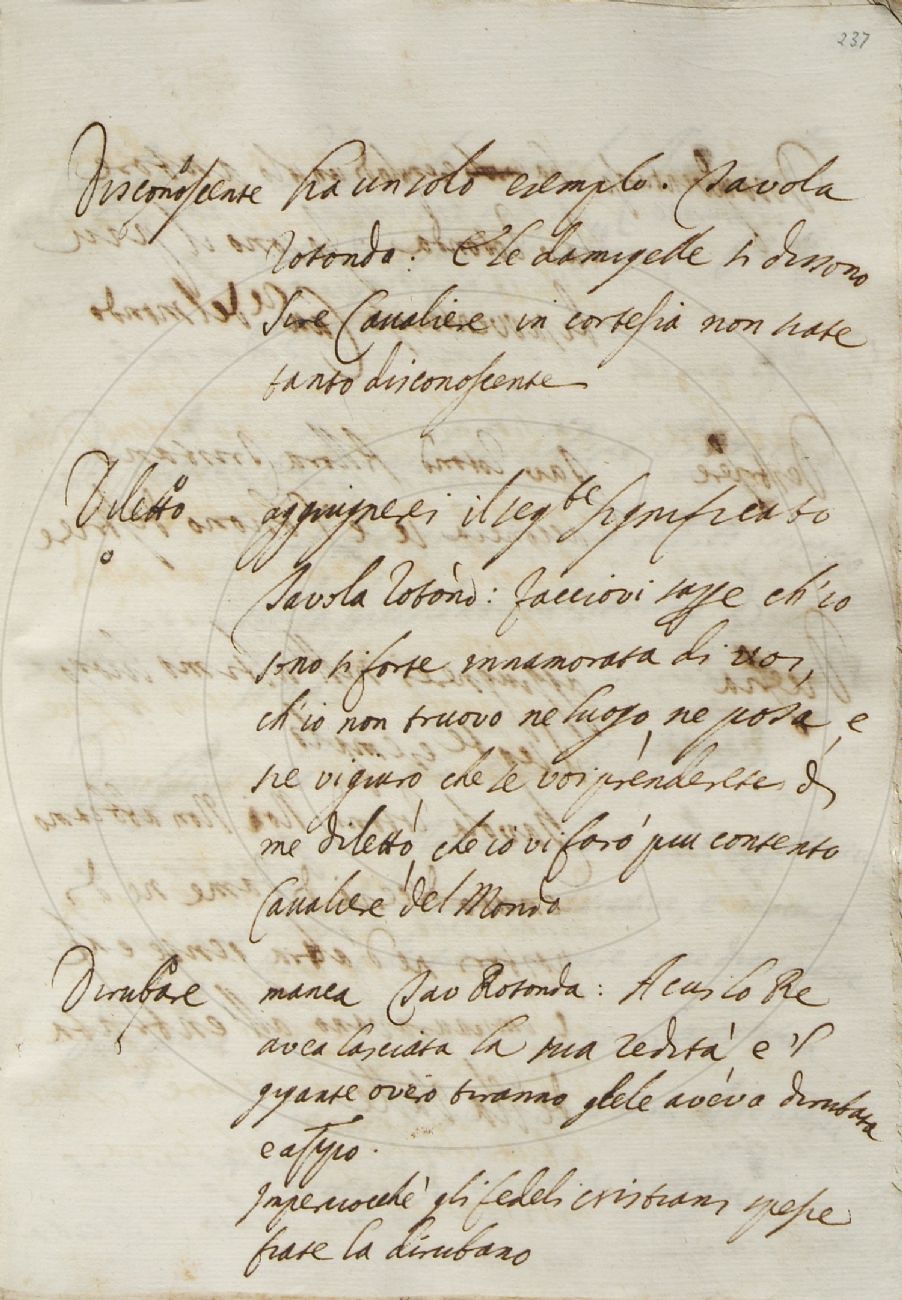 237
Disconoscente ha un solo esemplo. Tavola
Rotonda. E le damigelle si dissono
Sire Cavaliere in cortesia non siate
tanto disconoscente
Diletto aggiugnerei il segte significato
Tavola Rotond: facciovi sapere ch'io
sono si forte innamorata di voi,
ch'io non truovo ne luogo, ne posa, e
sie vi giuro, che se voi prenderete di
me diletto, che io vi farò piu contento
Cavaliere del Mondo
Dirubare manca Tav Rotonda: A cui lo Re
avea lasciata la sua redità e 'l
gigante overo tiranno glele aveva dirubata
e
Imperciocchè gli fedeli cristiani spesse
fiate la dirubano